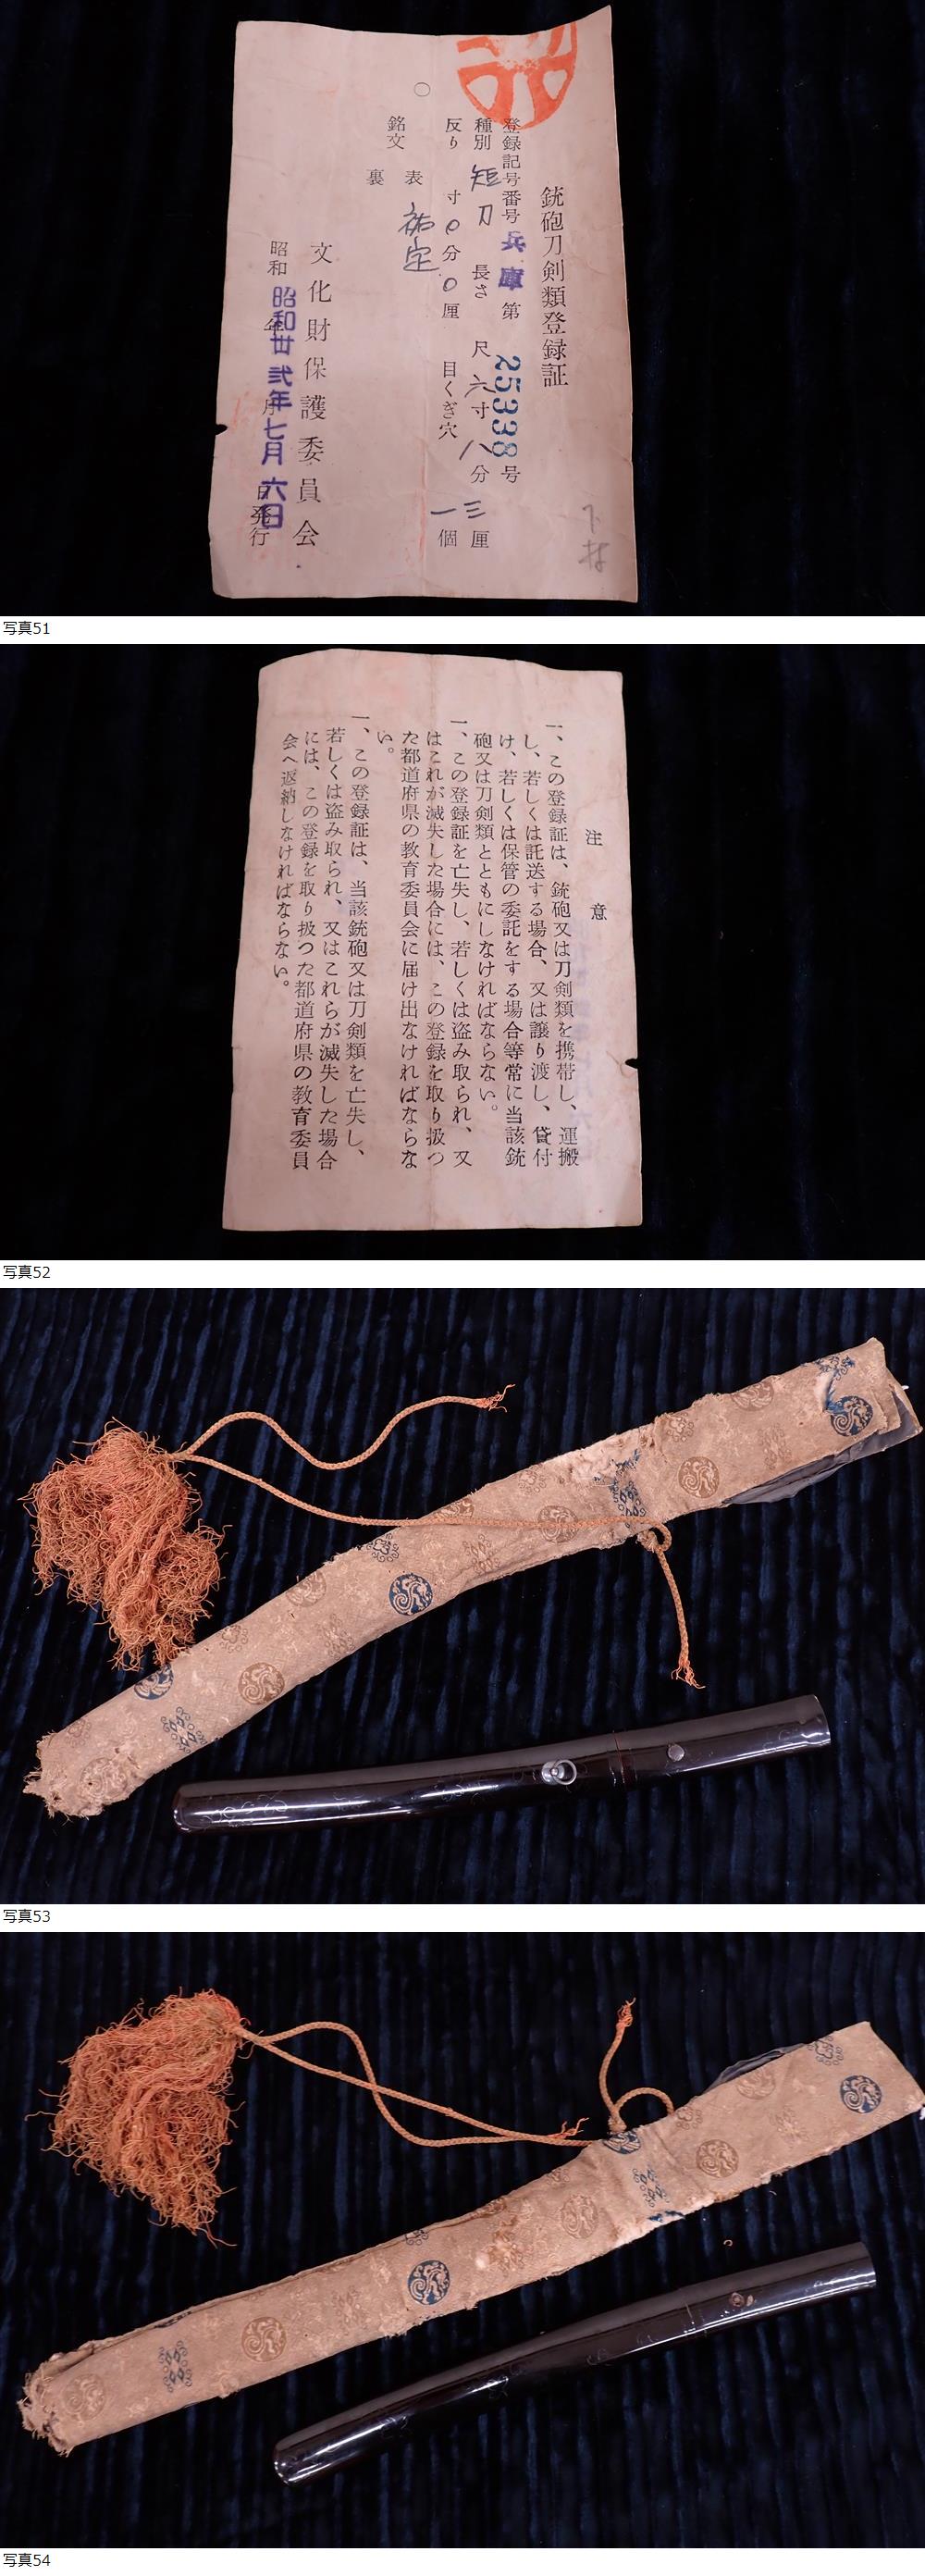 銃砲刀剣類登録証
登録記号番号 兵庫 第 25338 号
種別 短刀 長さ 尺 六寸 八分 三厘
反り 寸 0分 0厘 目くぎ穴 一個
銘文
表 祐定
裏
文化財保護委員会
昭和 年 月 日発行
昭和廿弐年七月六日
写真51
注意
一、この登録証は、銃砲又は刀剣類を携帯し、運搬
し、若しくは託送する場合、又は譲り渡し、貸付
け、若しくは保管の委託をする場合等常に当該銃
砲又は刀剣類とともにしなければならない。
一、この登録証を亡失し、若しくは盗み取られ、又
はこれが滅失した場合には、この登録を取り扱つ
た都道府県の教育委員会に届け出なければならな
い。
一、この登録証は、当該銃砲又は刀剣類を亡失し、
若しくは盗み取られ、又はこれらが滅失した場合
には、この登録を取り扱つた都道府県の教育委員
会へ返納しなければならない。
写真52
写真53
写真54